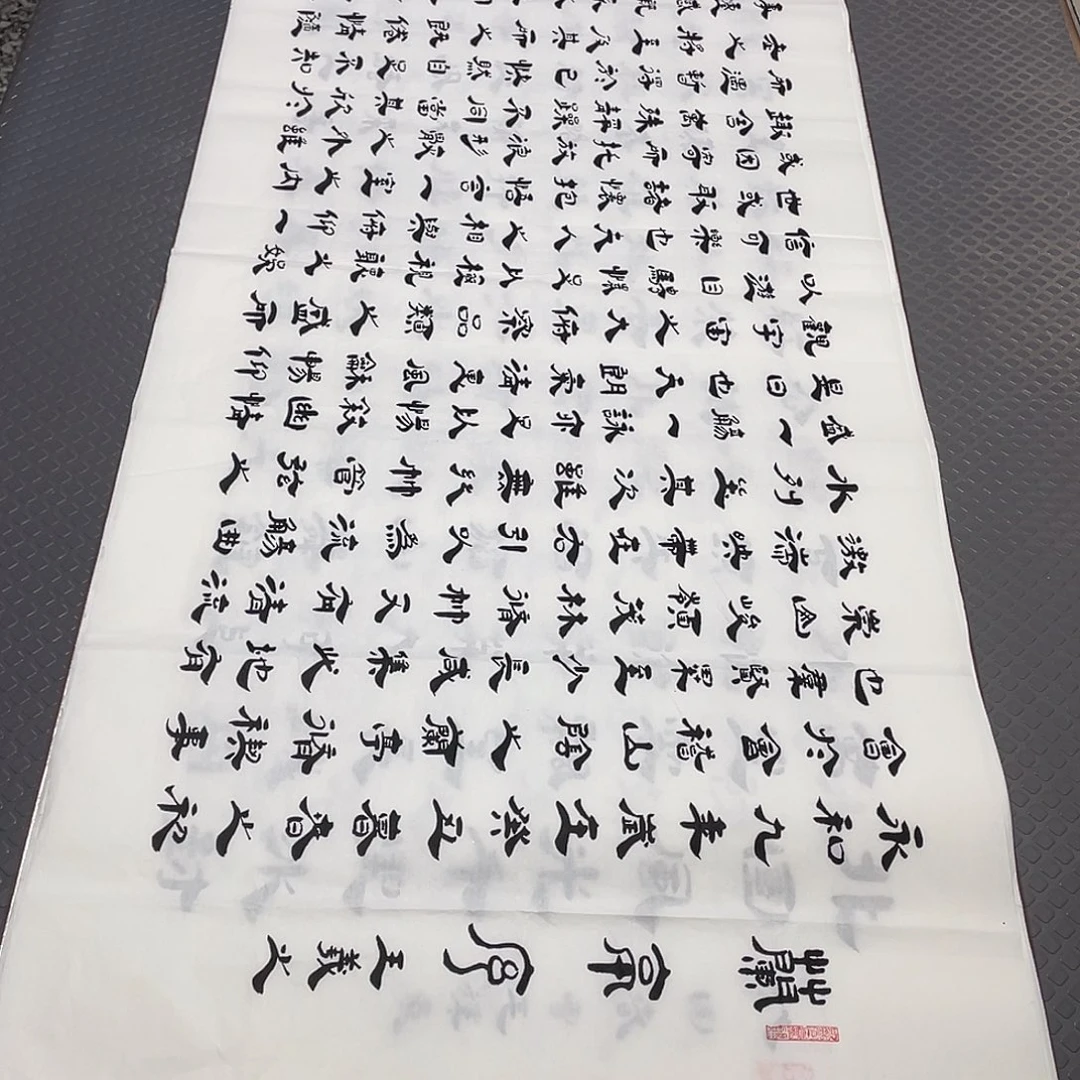 蘭亭序 王羲之
永和九年歲在癸丑暮春之初
會於會稽山陰之蘭亭脩禊事
也羣賢畢至少長咸集此地有
崇山峻領茂林脩竹又有清流
激湍映帶左右引以為流觴曲
水列坐其次雖無絲竹管弦之
盛一觴一詠亦足以暢敘幽情
是日也天朗氣清惠風龢暢仰
觀宇宙之大俯察品類之盛所
以遊目騁懷足以極視聽之娛
信可樂也夫人之相與俯仰一
世或取諸懷抱悟言一室之內
或因寄所託放浪形骸之外雖
趣舍萬殊靜躁不同當其欣於
所遇暫得於己快然自足不知
老之將至及其所之既倦情隨